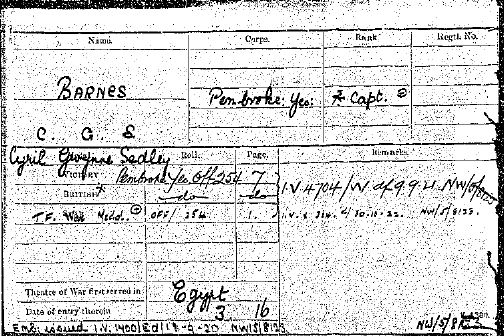 Name. Corps. Rank Regtl. No.
BARNES Pembroke: Yeo: T/ Capt.
C. G. S
Cyril Gwynne Sedley Roll. Page. Remarks.
VICTORY Pembroke Yeo Off 254 7 I.V. 4704/W NW/5/8123
BRITISH do do
T.F. War Medl. OFF/ 254 1. I.V. NW/5/8123.
Theatre of War first served in Egypt
Date of entry therein 3 16
Emb: issued I.V. 1400/Ed/18-9-20 NW/5/8123